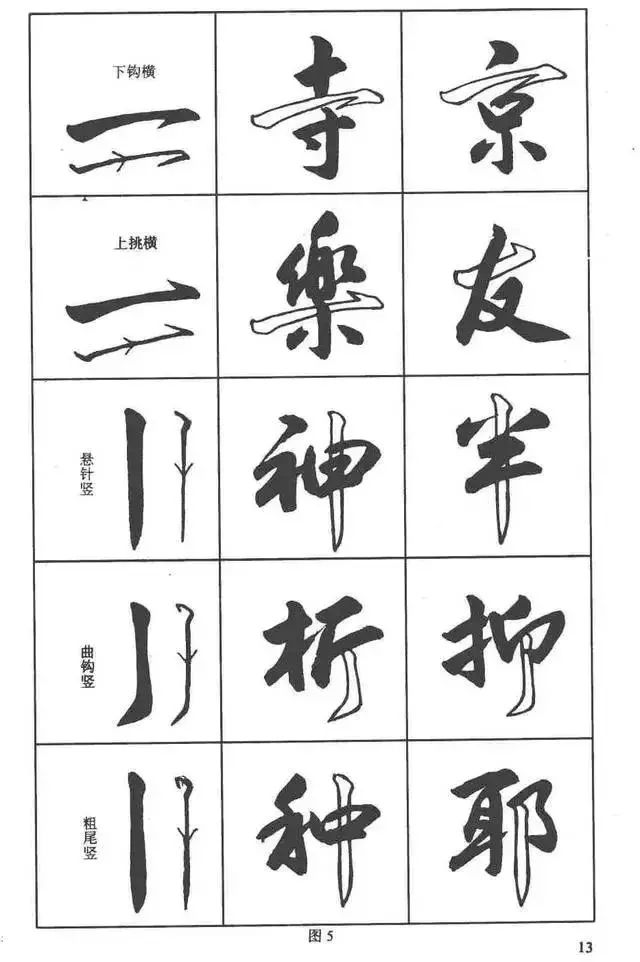 下钩横 寺 京
上挑横 樂 友
悬针竖 神 半
曲钩竖 析 抑
粗尾竖 种 耶
图 5
13